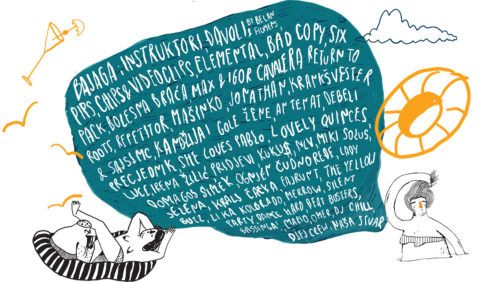 BAJAGA & INSTRUKTORI, DAVOLI, BY BECAR FILMERS
PIPS, CHIPS & VIDEOCLIPS, ELEMENTAL, BAD COPY, SIX
PACK, BOLESNA BRAĆA, MAX & IGOR CAVALERA RETURN TO
ROOTS, REPETITOR, MAŠINKO, JONATHAN, KRANKŠVESTER
& SAJSI MC, KANDŽIJA I GOLE ŽENE, ARTEMAT, DEBELI
PRECJEDNIK, SHE LOVES PABLO, LOVELY QUINCES,
LUCE, IRENA ŽILIĆ, PRIDJEVI, KUKU$, NLV, MIKI SOLUS,
DOMAGOJ ŠIMEK, OGNJEN, LADY
SELENA, KRALJ ČAČKA, FAJRUNT, THE YELLOW
LIKA KOLORADO, MERROW, SILENT
PARTY DANCE, HARD BEAT BUSTERS,
MARIO, OMER, DJ CHILL,
DJS CREW, MAŠA